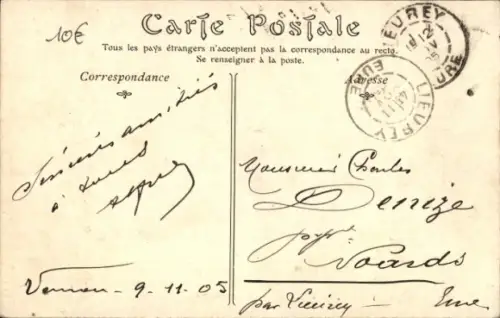 10€
Carte Postale
Tous les pays étrangers n'acceptent pas la correspondance au recto.
Se renseigner à la poste.
Correspondance
Adresse
LIEUREY
EURE
LIEUREY
EURE
Sincères amitiés
à tous
Monsieur Charles
Denize
Noards
par Lieurey Eure
Vernon - 9 - 11 05